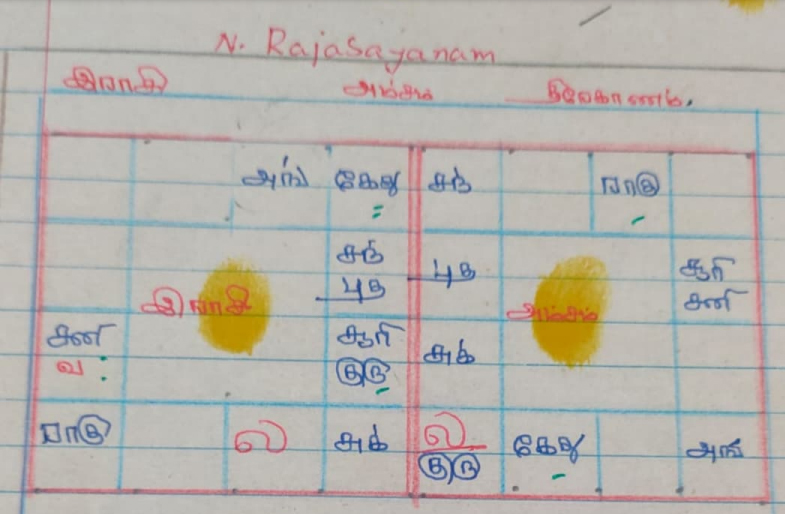 N. Rajasayanam
இராசி அம்சம் திரிகோணம்.
அங் கேது சந் ராகு
சந்
புத புத சூரி
இராசி அம்சம் சனி
சனி சூரி சுக்
வ: குரு
ராகு ல சுக் ல கேது அங்
குரு